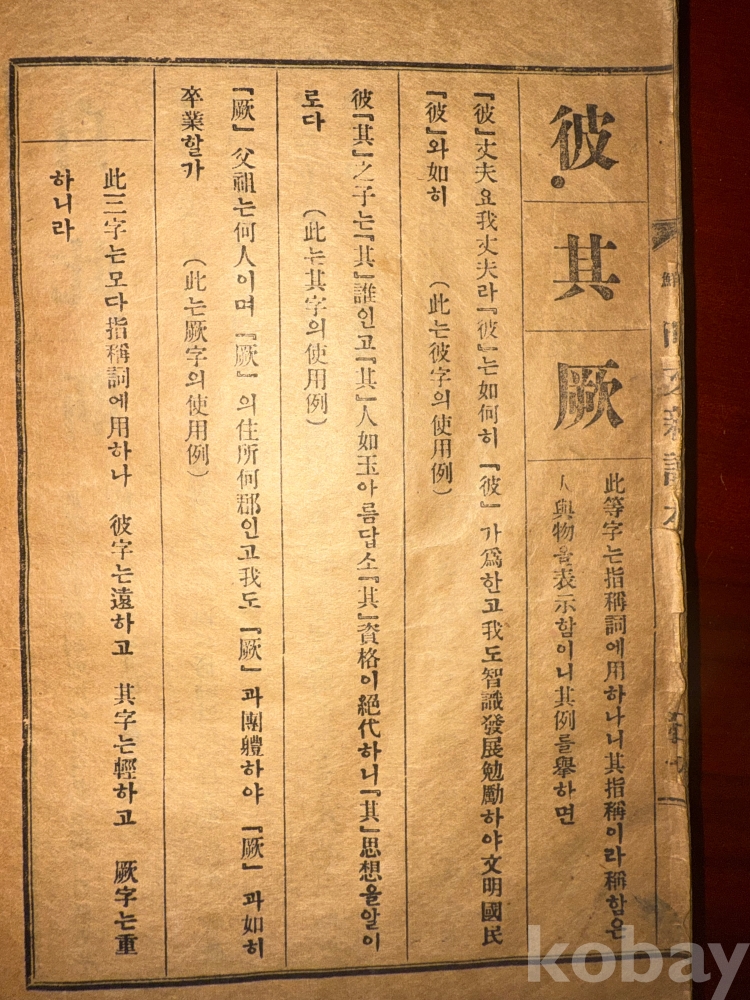 彼 其 厥
此等字는指稱詞에用하나니其指稱이라稱함은
人與物을表示함이니其例를擧하면
『彼』丈夫요我丈夫라『彼』는如何히『彼』가爲한고我도智識發展勉勵하야文明國民
『彼』와如히 (此는彼字의使用例)
彼『其』之子는『其』誰인고『其』人如玉아름답소『其』資格이絕代하니『其』思想을알이
로다 (此는其字의使用例)
『厥』父祖는何人이며『厥』의住所何郡인고我도『厥』과團體하야『厥』과如히
卒業할가 (此는厥字의使用例)
此三字는모다指稱詞에用하나 彼字는遠하고 其字는輕하고 厥字는重
하니라
kobay